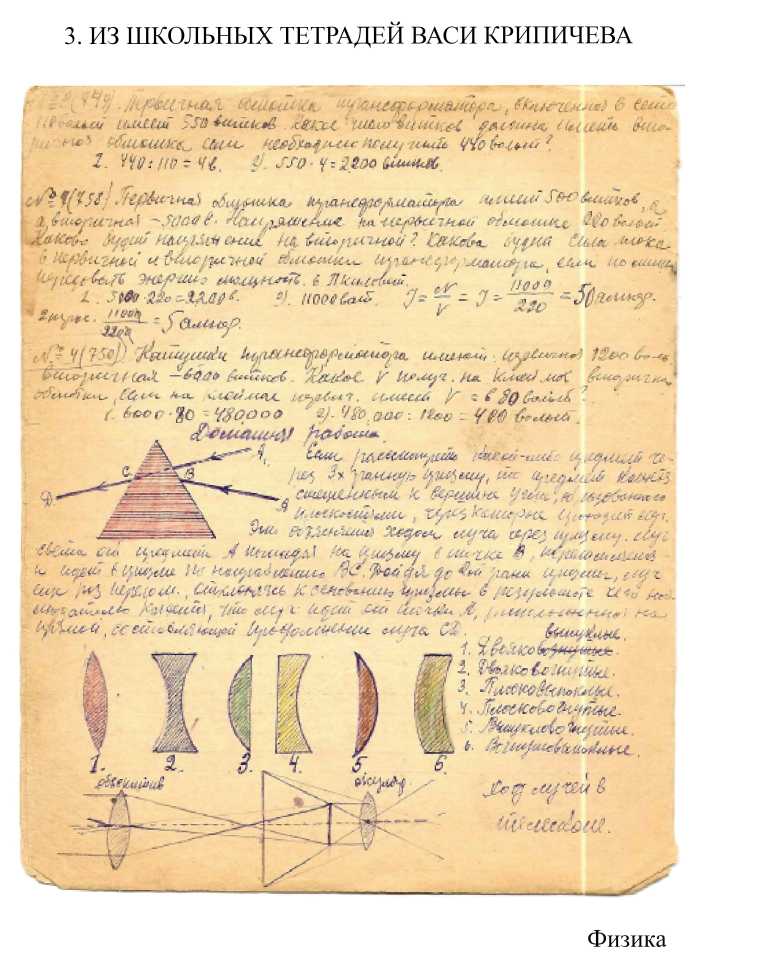 3. ИЗ ШКОЛЬНЫХ ТЕТРАДЕЙ ВАСИ КРИПИЧЕВА
Первичная обмотка трансформатора, включенной в сеть
110 вольт имеет 550 витков. Какое число витков должна иметь вто-
ричная обмотка если необходимо получить 440 вольт?
1. 440:110=4в. 2). 550·4=2200 витков.
Первичная обмотка трансформатора имеет 500 витков, а
вторичная – 5000 в. Напряжение на первичной обмотке 220 вольт
Каково будет напряжение на вторичной? Какова будет сила тока
в первичной и вторичной обмотки трансформатора, если
передовать энергию мощность. в
220=2200в. 2). 11000 ват. J= N/V = J= 11000/220 =50 ампер.
11000/2200 =5 ампер.
№ 4(750) Катушки трансформатора имеют: 1200
вторичная –6000 витков. Какое V получ. на
обмотки, если на клеммах имеет V = 80 вольт?
1. 6000·80=480000 2). 480,000:1200=400 вольт.
Домашняя работа.
Если рассматривать какой-либо предмет че-
рез 3х гранную призму, то предмет кажется
смещенным к вершине угла,
плоскостями, через которые проходит луч.
Это объясняется ходом луча через призму. Луч
света от предмета А попадая на призму в точке В,
и идет в призме по направлению ВС. Дойдя до 2ой грани призмы, луч
еще раз отклоняясь к основанию призмы в результате чего
кажется, что луч идет от точки А, расположенной на
прямой, составляющей продолжение луча СД.
A₁
C
B
D
A
выпуклые.
1. Двояковогнутые.
2. Двояковогнутые.
3.
4. Плосковогнутые.
5. Выпукловогнутые.
6.
1. 2. 3. 4. 5. 6.
объектив
окуляр.
ход лучей в
телескопе.
Физика